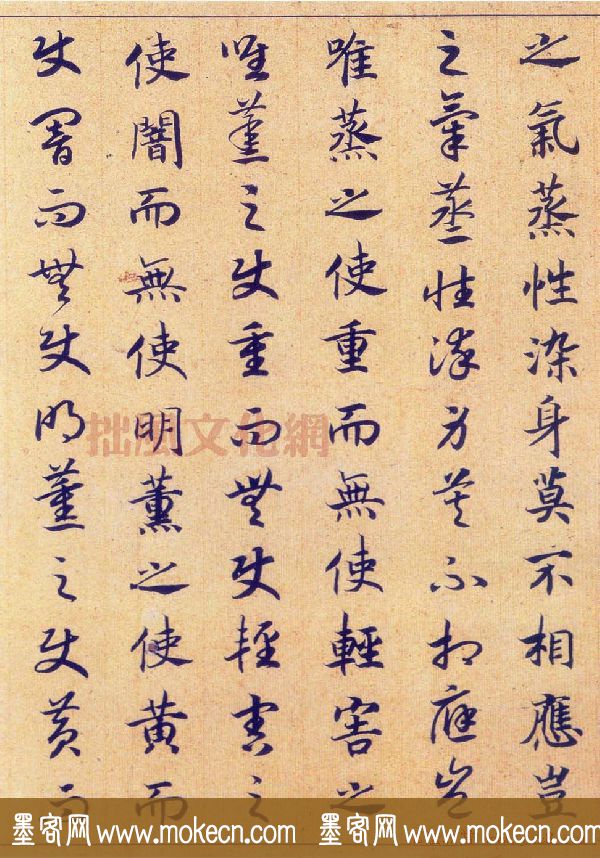 之氣蒸性染身莫不相應豈
之氣蒸性染身莫不相應豈
唯蒸之使重而無使輕害之
唯蒸之使重而無使輕害之
使闇而無使明薰之使黃而
使闇而無使明薰之使黃而
拙風文化網
墨客网 www.mokecn.com 墨客网 www.mokecn.com